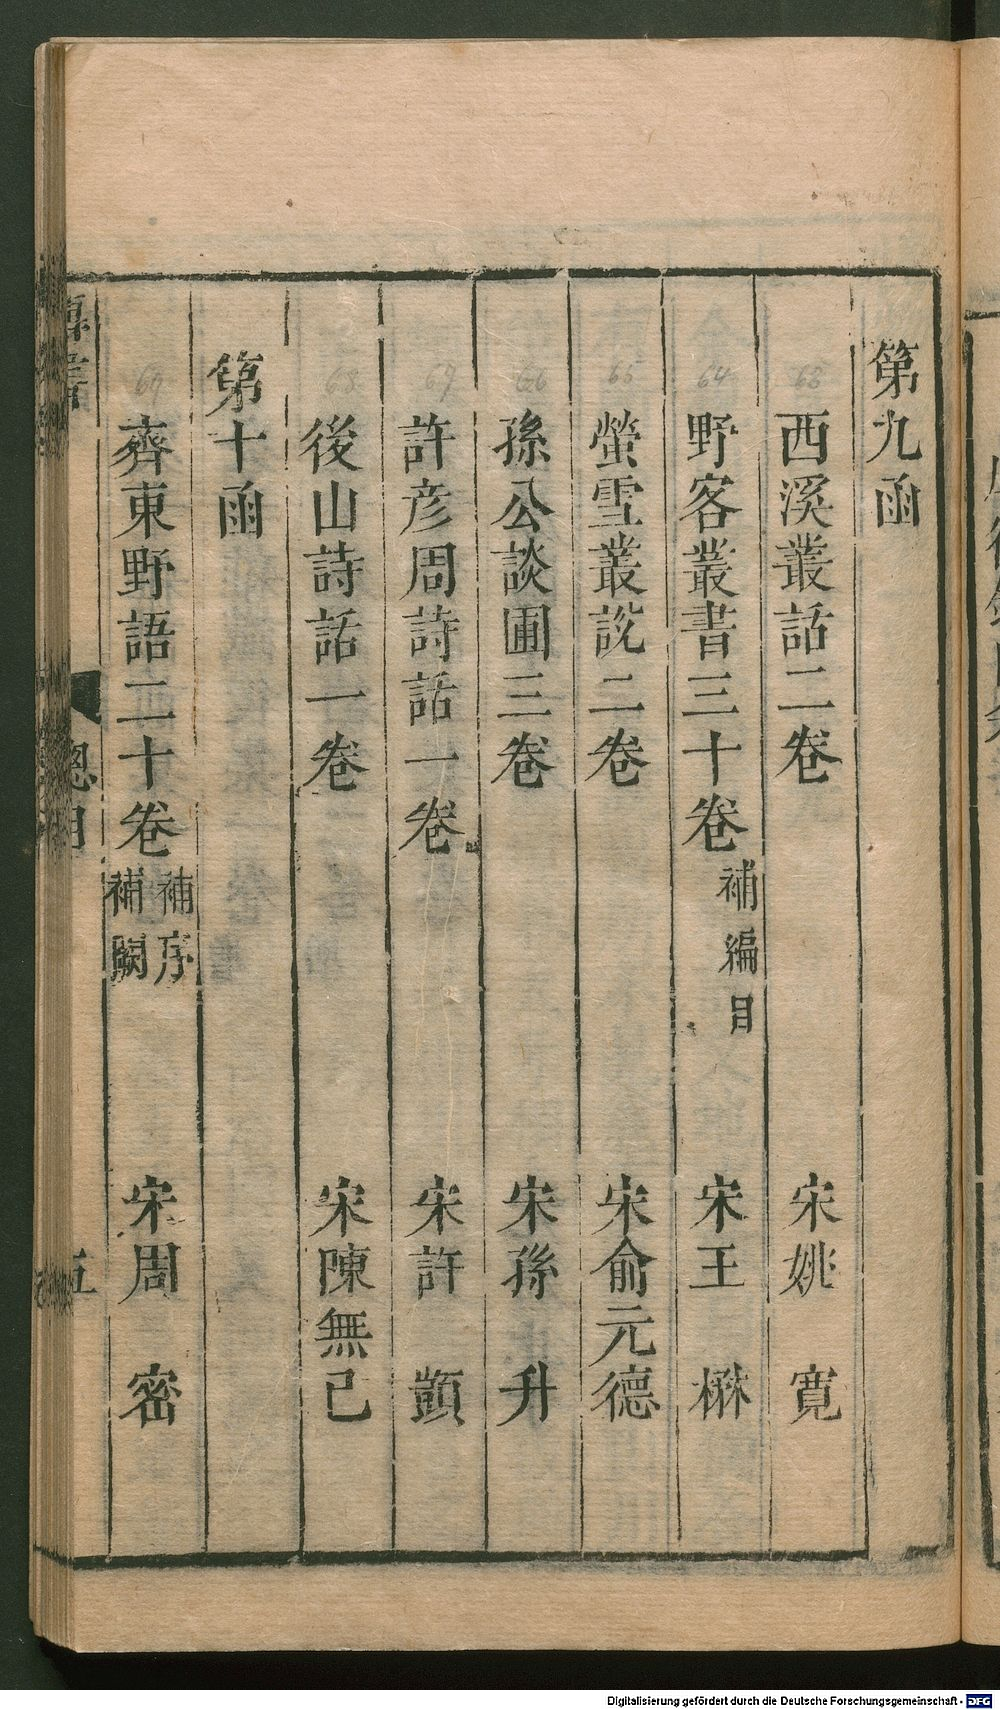 第九函
西溪叢話二卷 宋姚 寬
野客叢書三十卷 補編目 宋王 楙
螢雪叢說二卷 宋俞元德
孫公談圃三卷 宋孫 升
許彥周詩話一卷 宋許 顗
後山詩話一卷 宋陳無已
第十函
齊東野語二十卷 補序 補闕 宋周 密
總目
五
63
64
65
66
67
68
69
Digitalisierung gefördert durch die Deutsche Forschungsgemeinschaft - DFG